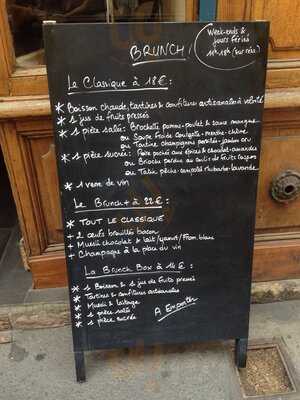 BRUNCH!
Week-ends &
jours fériés
11h-18h (sur résa)
Le Classique à 18€ :
* Boisson chaude, tartines & confitures artisanales à volonté
* 1 jus de fruits pressés
* 1 pièce salée : Brochette pomme-poulet & sauce mangue
ou Soupe Froide Courgette-Menthe-Chèvre
ou Tartine champignons persillés - jambon cru
* 1 pièce sucrée : Poire pochée aux épices & chocolat-amandes
ou Brioche perdue au coulis de fruits rouges
ou Tatin pêche-rhubarbe-lavande
* 1 verre de vin
Le Brunch + à 22€ :
* TOUT LE CLASSIQUE
+ 2 œufs brouillés bacon
+ Muesli chocolat & lait/yaourt/From. blanc
+ Champagne à la place du vin
La Brunch Box à 14€ :
* 1 Boisson & 1 jus de fruits pressés
* Tartines & confitures artisanales
* Muesli & laitage
* 1 pièce salée
* 1 pièce sucrée
A Emporter